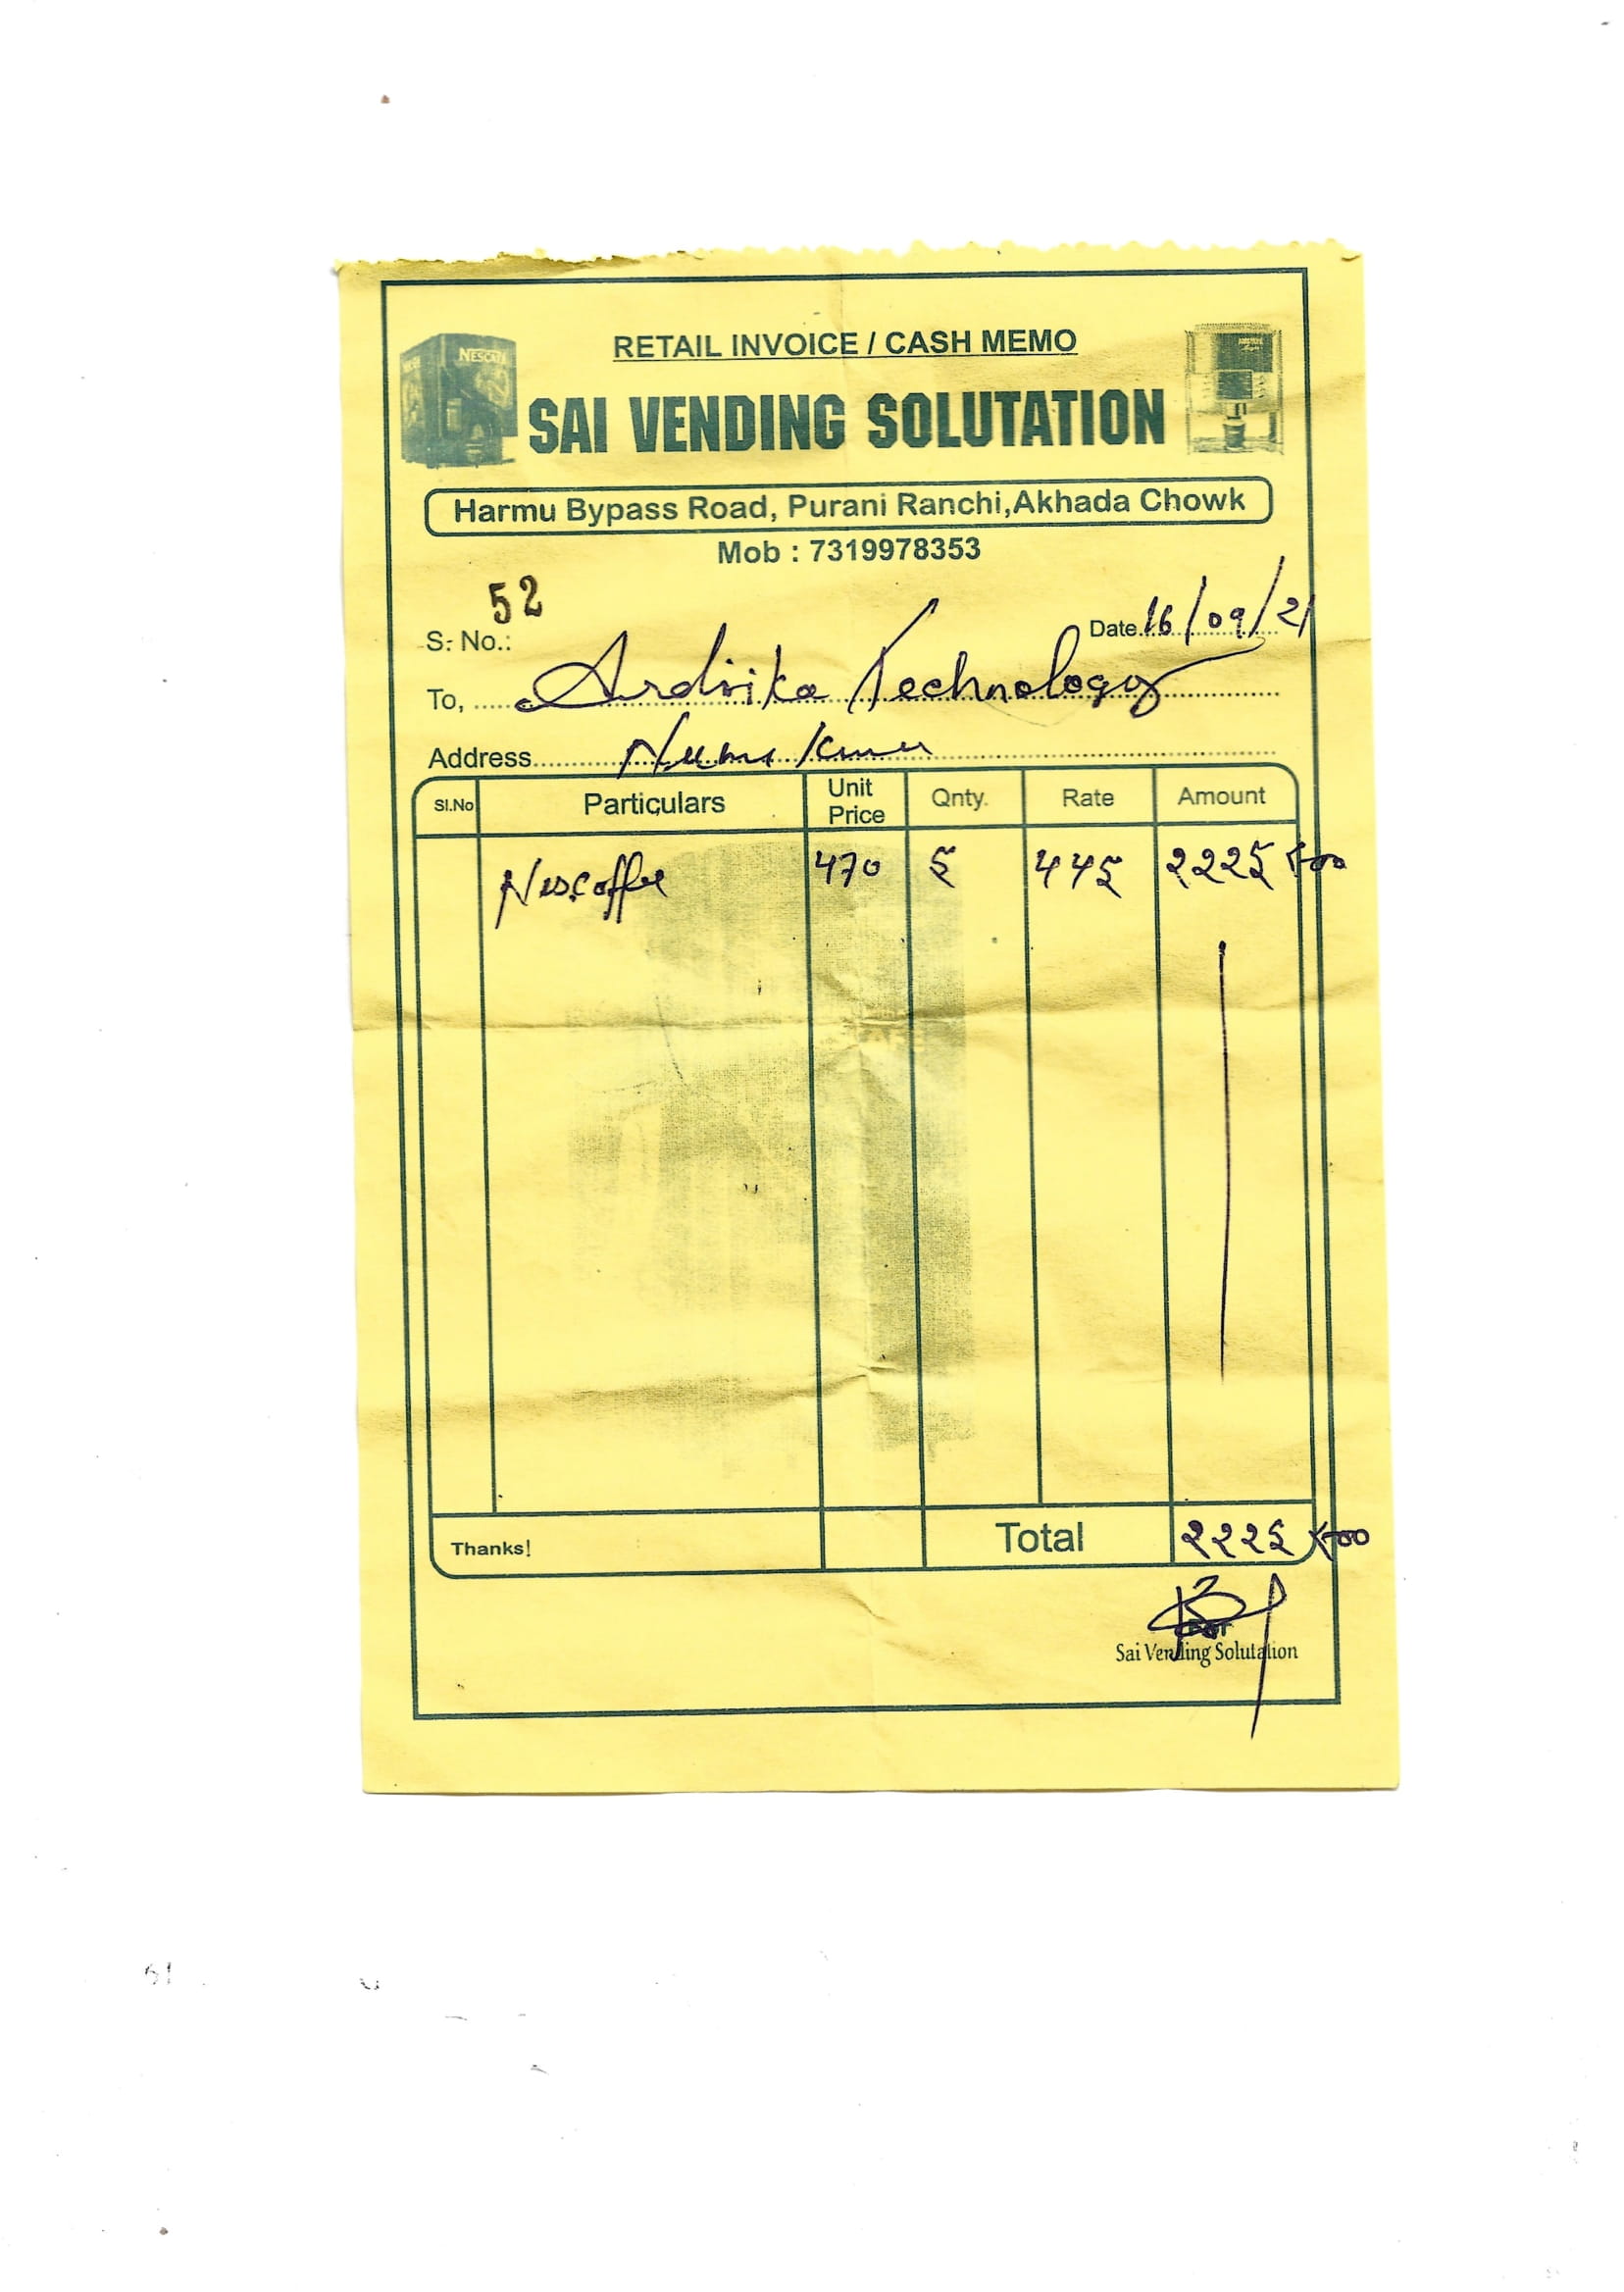 RETAIL INVOICE / CASH MEMO
NESCAFE
SAI VENDING SOLUTATION
Harmu Bypass Road, Purani Ranchi,Akhada Chowk
Mob : 7319978353
52
S. No.:
Date 16/09/21
To, Ardrika Technology
Address
Sl.No Particulars Unit Price Qnty. Rate Amount
Nescoffee 470 5 445 2225
Thanks! Total 2225
Sai Vending Solutation